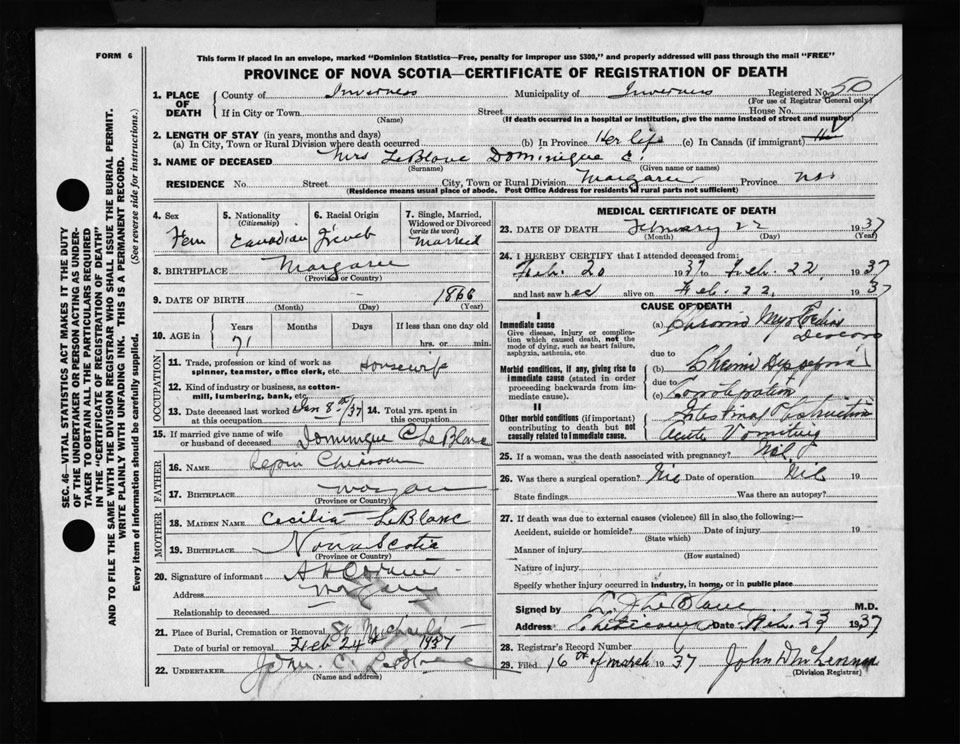 FORM 6
This form if placed in an envelope, marked "Dominion Statistics—Free, penalty for improper use $300," and properly addressed will pass through the mail "FREE"
PROVINCE OF NOVA SCOTIA—CERTIFICATE OF REGISTRATION OF DEATH
SEC. 46—VITAL STATISTICS ACT MAKES IT THE DUTY
OF THE UNDERTAKER OR PERSON ACTING AS UNDER-
TAKER TO OBTAIN ALL THE PARTICULARS REQUIRED
IN THE "CERTIFICATE OF REGISTRATION OF DEATH"
AND TO FILE THE SAME WITH THE DIVISION REGISTRAR WHO SHALL ISSUE THE BURIAL PERMIT.
WRITE PLAINLY WITH UNFADING INK. THIS IS A PERMANENT RECORD.
Every item of information should be carefully supplied. (See reverse side for instructions.)
1. PLACE OF DEATH
County of Inverness Municipality of Inverness Registered No. 50
(For use of Registrar General only)
If in City or Town Street House No.
(Name) (If death occurred in a hospital or institution, give the name instead of street and number)
2. LENGTH OF STAY (in years, months and days)
(a) In City, Town or Rural Division where death occurred (b) In Province Her life (c) In Canada (if immigrant)
3. NAME OF DECEASED Mrs LeBlanc Dominique C.
(Surname) (Given name or names)
RESIDENCE No. Street City, Town or Rural Division Margaree Province N.S.
(Residence means usual place of abode. Post Office Address for residents of rural parts not sufficient)
4. Sex Fem
5. Nationality (Citizenship) Canadian
6. Racial Origin French
7. Single, Married, Widowed or Divorced (write the word) Married
8. BIRTHPLACE Margaree
(Province or Country)
9. DATE OF BIRTH 1866
(Month) (Day) (Year)
10. AGE in Years Months Days If less than one day old
71 hrs. or min.
OCCUPATION
11. Trade, profession or kind of work as spinner, teamster, office clerk, etc. Housewife
12. Kind of industry or business, as cotton-mill, lumbering, bank, etc.
13. Date deceased last worked at this occupation Jan 8th/37 14. Total yrs. spent in this occupation
15. If married give name of wife or husband of deceased Dominique C LeBlanc
FATHER
16. NAME Chiasson
17. BIRTHPLACE
(Province or Country)
MOTHER
18. MAIDEN NAME Cecilia LeBlanc
19. BIRTHPLACE Nova Scotia
(Province or Country)
20. Signature of informant
Address
Relationship to deceased
21. Place of Burial, Cremation or Removal St Michaels
Date of burial or removal Feb 24th 1937
22. UNDERTAKER John C. LeBlanc
(Name and address)
MEDICAL CERTIFICATE OF DEATH
23. DATE OF DEATH February 22 1937
(Month) (Day) (Year)
24. I HEREBY CERTIFY that I attended deceased from:
Feb. 20 1937 to Feb. 22, 1937
and last saw her alive on Feb. 22, 1937
CAUSE OF DEATH
I
Immediate cause
Give disease, injury or complication which caused death, not the mode of dying, such as heart failure, asphyxia, asthenia, etc.
(a) Chronic Myocardial Disease
due to
Morbid conditions, if any, giving rise to immediate cause (stated in order proceeding backwards from immediate cause).
(b) Chronic Dyspepsia
due to
(c) Constipation
II
Other morbid conditions (if important) contributing to death but not causally related to immediate cause.
Intestinal Obstruction
Acute Vomiting
25. If a woman, was the death associated with pregnancy? Nil
26. Was there a surgical operation? Nil Date of operation Nil 19
State findings Was there an autopsy?
27. If death was due to external causes (violence) fill in also the following:—
Accident, suicide or homicide? Date of injury 19
(State which)
Manner of injury
(How sustained)
Nature of injury
Specify whether injury occurred in industry, in home, or in public place
Signed by L. J. LeBlanc M.D.
Address Cheticamp Date Feb. 23 1937
28. Registrar's Record Number
29. Filed 16th of March 1937 John D McLennan
(Division Registrar)